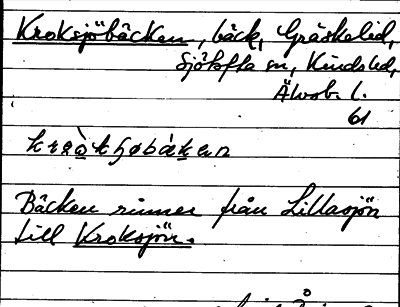 Kroksjöbäcken, bäck, Gräskelid,
Sjötofta sn, Kinds hd,
Älvsb. l.
61
Bäcken rinner från Lillasjön
till Kroksjön.